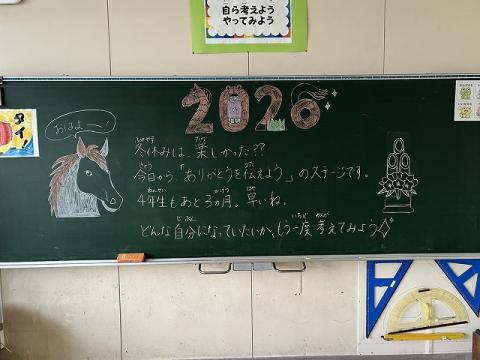 自ら考えよう
やってみよう
2026
おはよ〜!
タイ!
冬休みは、楽しかった??
今日から、「ありがとうを伝えよう」のステージです。
4年生もあと3ヵ月。早いね。
どんな自分になっていたいか、もう一度考えてみよう